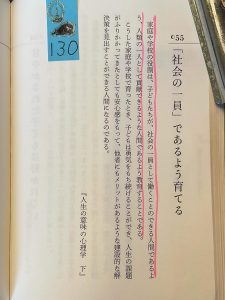 c55
「社会の一員」であるよう育てる
家庭や学校の役割は、子どもたちが、社会の一員として働くことのできる人間であるよ
う、人類の一人として貢献できるような人間であるよう教育することである。
こうした家庭や学校で育ったとき、子どもは勇気をもち続けることができ、人生の課題
がふりかかってきたとしても安心感をもって、他者にもメリットがあるような建設的な解
決策を見出すことができる人間になるのである。
『人生の意味の心理学 下』
130